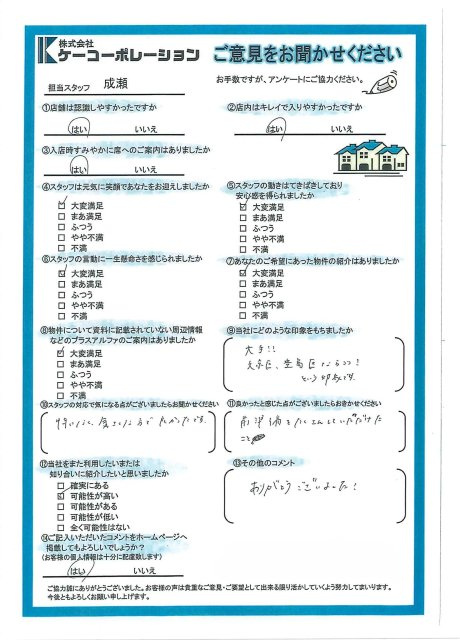 株式会社
ケーコーポレーション
ご意見をお聞かせください
担当スタッフ 成瀬
お手数ですが、アンケートにご協力ください。
①店舗は認識しやすかったですか
はい いいえ
②店内はキレイで入りやすかったですか
はい いいえ
③入店時すみやかに席へのご案内はありましたか
はい いいえ
④スタッフは元気に笑顔であなたをお迎えしましたか
大変満足
まあ満足
ふつう
やや不満
不満
⑤スタッフの動きはてきぱきしており
安心感を得られましたか
大変満足
まあ満足
ふつう
やや不満
不満
⑥スタッフの言動に一生懸命さを感じられましたか
大変満足
まあ満足
ふつう
やや不満
不満
⑦あなたのご希望にあった物件の紹介はありましたか
大変満足
まあ満足
ふつう
やや不満
不満
⑧物件について資料に記載されていない周辺情報
などのプラスアルファのご案内はありましたか
大変満足
まあ満足
ふつう
やや不満
不満
⑨当社にどのような印象をもちましたか
大手!!
という印象です。
⑩スタッフの対応で気になる点がございましたらお聞かせください
特になく、
⑪良かったと感じた点がございましたらおきかせください
していただけた
こと
⑫当社をまた利用したいまたは
知り合いに紹介したいと思いましたか
確実にある
可能性が高い
可能性がある
可能性が低い
全く可能性はない
⑬その他のコメント
ありがとうございました!
⑭ご記入いただいたコメントをホームページへ
掲載してもよろしいでしょうか?
(お客様の個人情報は十分に配慮致します)
はい いいえ
ご協力誠にありがとうございました。お客様の声は貴重なご意見・ご要望として出来る限り活かしていくよう努力してまいります。
今後ともよろしくお願い申し上げます。